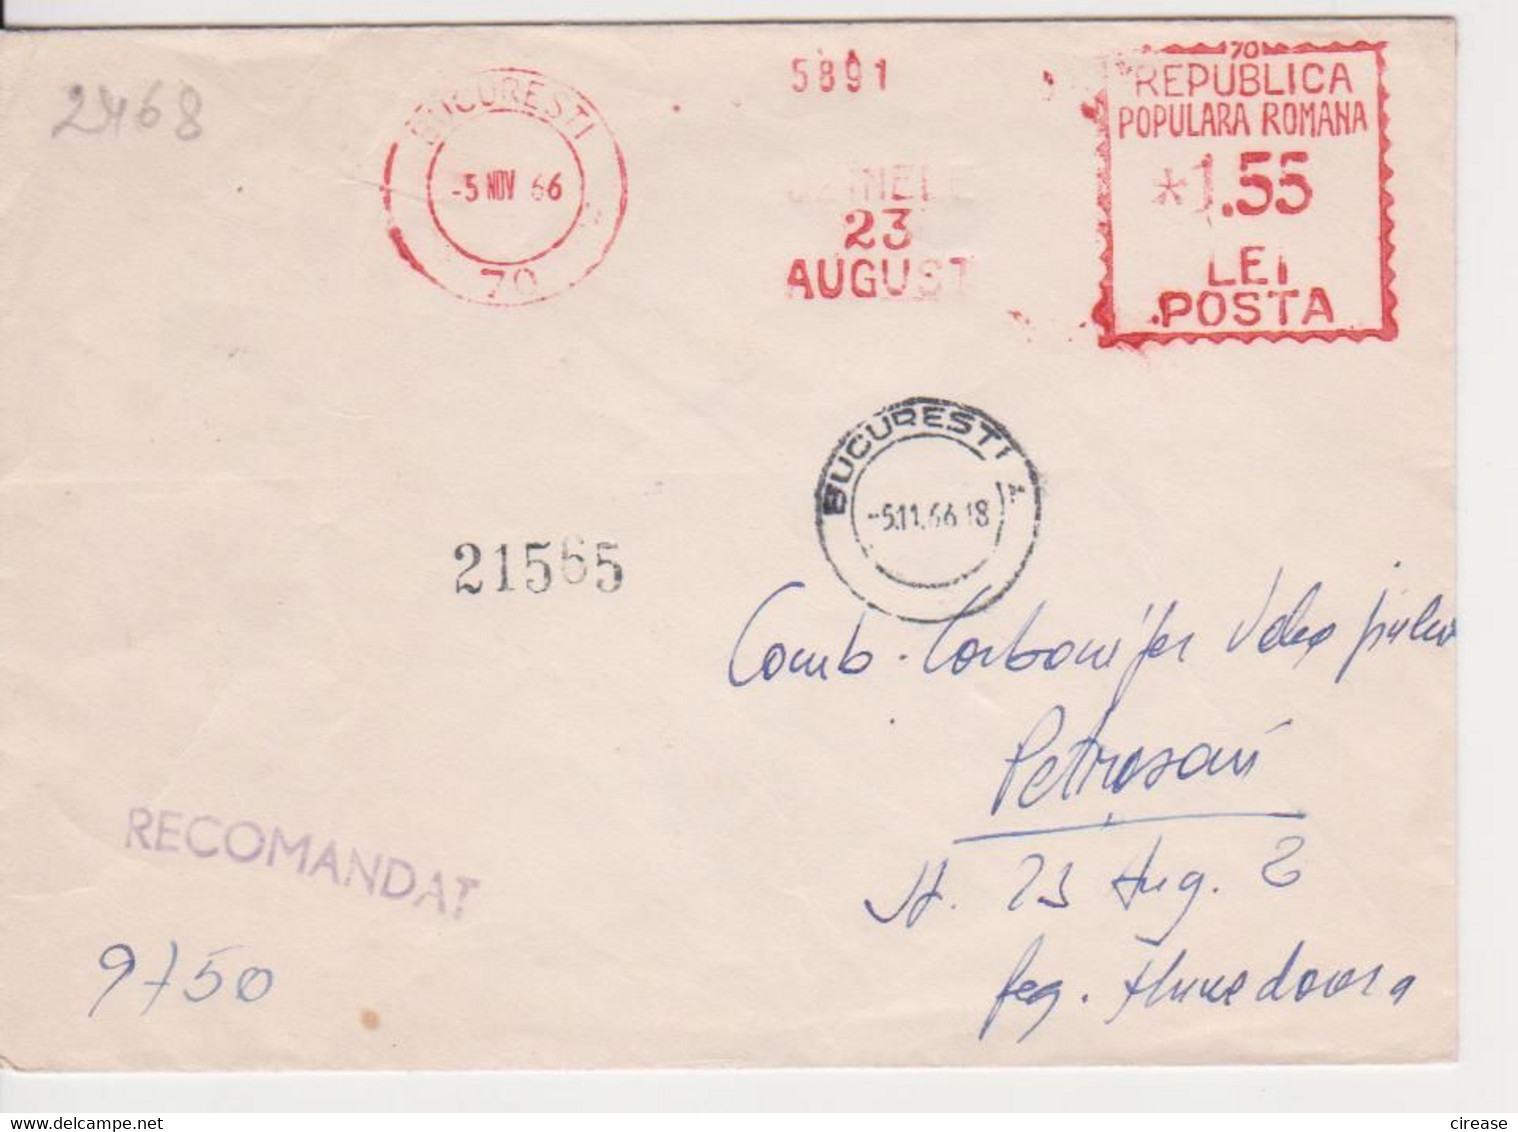 2468
BUCURESTI
-5 NOV 66
70
5891
UZINELE
23
AUGUST
70
REPUBLICA
POPULARA ROMANA
*1.55
LEI
POSTA
BUCURESTI
-5.11.66 18
21565
Comb. Carbonifer Valea Jiului
Petrosani
St. 23 Aug. 2
Reg. Hunedoara
RECOMANDAT
9750
cirease